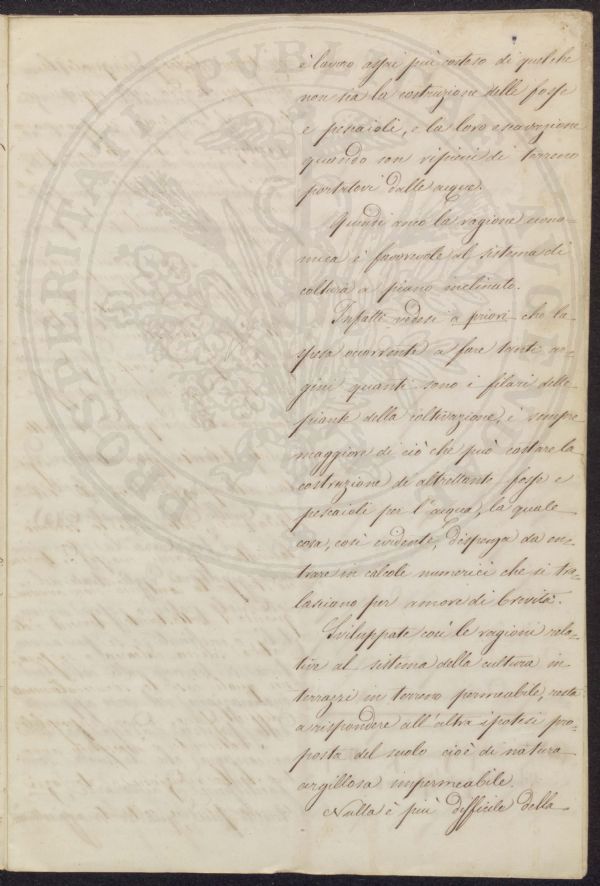 è lavoro assai più costoso di quelche
non sia la costruzione delle fosse
e pescaioli, e la loro escavazione
quando son ripieni di terreno
portatovi dalle acque.
Quindi anco la ragione econo=
mica è favorevole al sistema di
coltura a piano inclinato.
Infatti vedesi a priori che la
spesa occorrente a fare tanti ar=
gini quanti sono i filari delle
piante della coltivazione, è sempre
maggiore di ciò che può costare la
costruzione di altrettante fosse e
pescaioli per l'acqua, la quale
cosa, così evidente, dispensa da en=
trare in calcoli numerici che si tra=
lasciono per amore di brevità.
Sviluppate così le ragioni rela=
tive al sistema della cultura in
terrazzi in terreno permeabile, resta
a rispondere all'altra ipotesi pro=
posta del suolo cioè di natura
argillosa impermeabile.
Nulla è più difficile della
PROSPERITATI PVBLICAE AVGENDAE